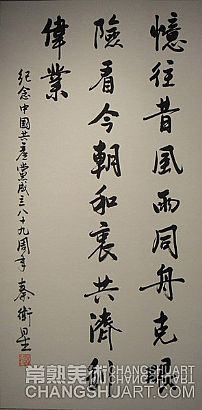 憶往昔風雨同舟克艱
險看今朝和衷共濟創
偉業
紀念中國共產黨成立八十九周年 秦衛星
常熟美術
CHANGSHUART.COM